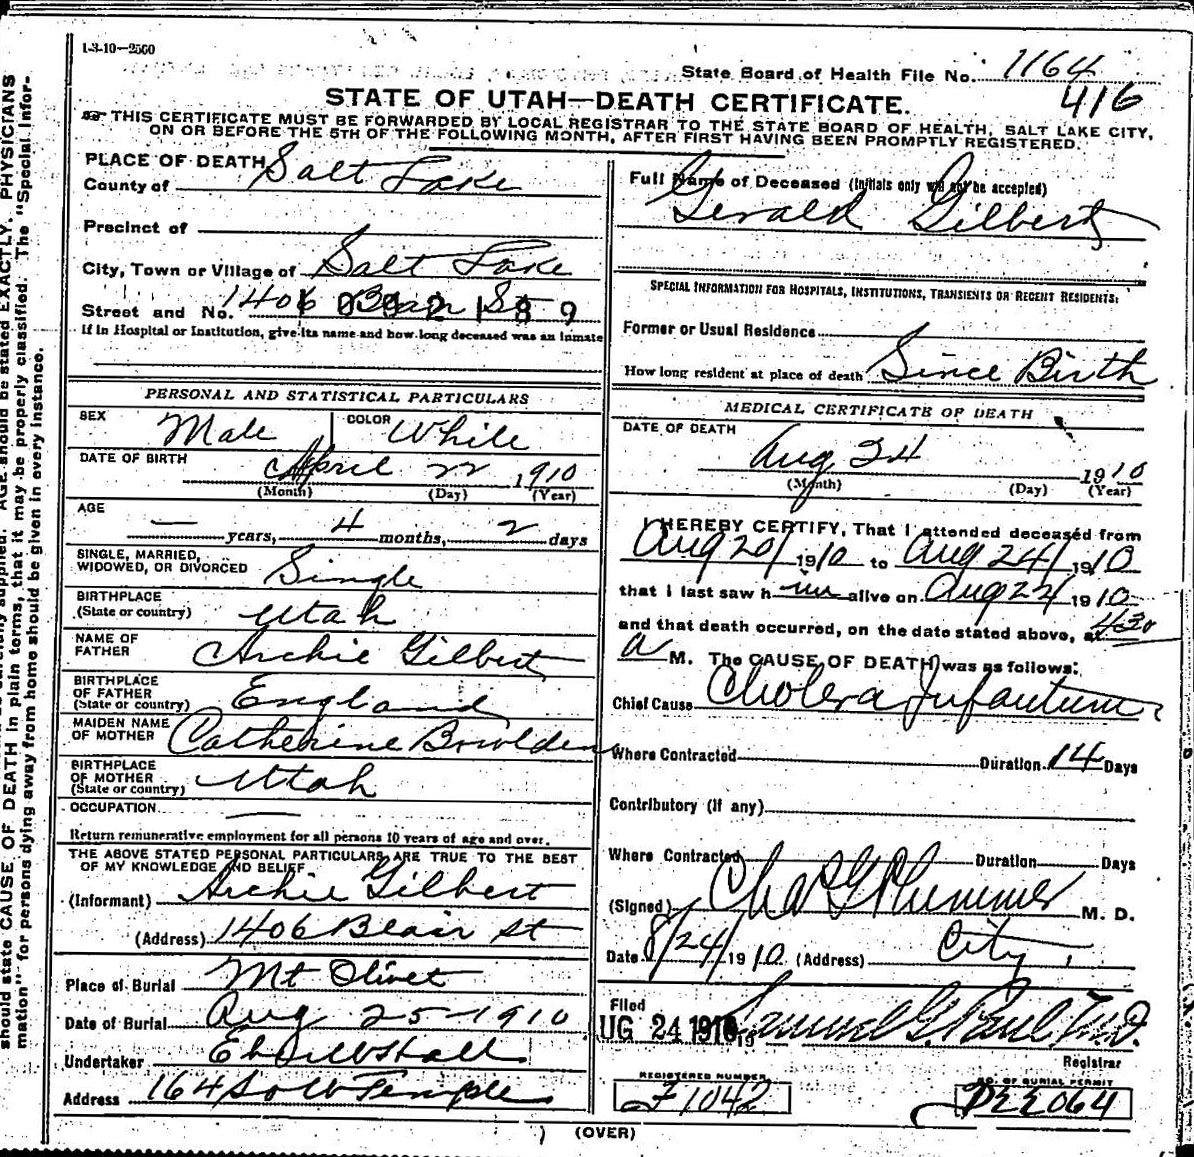 1-3-10—2500
State Board of Health File No. 1164
416
STATE OF UTAH—DEATH CERTIFICATE.
THIS CERTIFICATE MUST BE FORWARDED BY LOCAL REGISTRAR TO THE STATE BOARD OF HEALTH, SALT LAKE CITY,
ON OR BEFORE THE 5TH OF THE FOLLOWING MONTH, AFTER FIRST HAVING BEEN PROMPTLY REGISTERED.
PLACE OF DEATH
County of Salt Lake
Precinct of
City, Town or Village of Salt Lake
Street and No. 1406 Blair St
1002189
If in Hospital or Institution, give its name and how long deceased was an inmate
PERSONAL AND STATISTICAL PARTICULARS
SEX Male COLOR White
DATE OF BIRTH April 22 1910
(Month) (Day) (Year)
AGE
— years, 4 months, 2 days
SINGLE, MARRIED,
WIDOWED, OR DIVORCED Single
BIRTHPLACE
(State or country) Utah
NAME OF
FATHER Archie Gilbert
BIRTHPLACE
OF FATHER
(State or country) England
MAIDEN NAME
OF MOTHER Catherine Bowlden
BIRTHPLACE
OF MOTHER
(State or country) Utah
OCCUPATION —
Return remunerative employment for all persons 10 years of age and over.
THE ABOVE STATED PERSONAL PARTICULARS ARE TRUE TO THE BEST
OF MY KNOWLEDGE AND BELIEF
(Informant) Archie Gilbert
(Address) 1406 Blair St
Place of Burial Mt Olivet
Date of Burial Aug 25-1910
Undertaker
Address 164 So W Temple
Full Name of Deceased (Initials only will not be accepted)
Gerald Gilbert
SPECIAL INFORMATION FOR HOSPITALS, INSTITUTIONS, TRANSIENTS OR RECENT RESIDENTS:
Former or Usual Residence
How long resident at place of death Since Birth
MEDICAL CERTIFICATE OF DEATH
DATE OF DEATH
Aug 24 1910
(Month) (Day) (Year)
I HEREBY CERTIFY, That I attended deceased from
Aug 20/ 1910 to Aug 24/ 1910
that I last saw h im alive on Aug 24 1910
and that death occurred, on the date stated above, at 430
a M. The CAUSE OF DEATH was as follows:
Chief Cause Cholera Infantum
Where Contracted Duration 14 Days
Contributory (if any)
Where Contracted Duration Days
(Signed) Chas G Plummer M. D.
Date 8/24/ 1910 (Address) City
Filed
UG 24 1910 19 Samuel G. Paul M.D.
Registrar
REGISTERED NUMBER
F1042
NO. OF BURIAL PERMIT
(OVER)
should state CAUSE OF DEATH in plain terms, that it may be properly classified. The "Special Infor-
mation" for persons dying away from home should be given in every instance.
AGE should be stated EXACTLY. PHYSICIANS